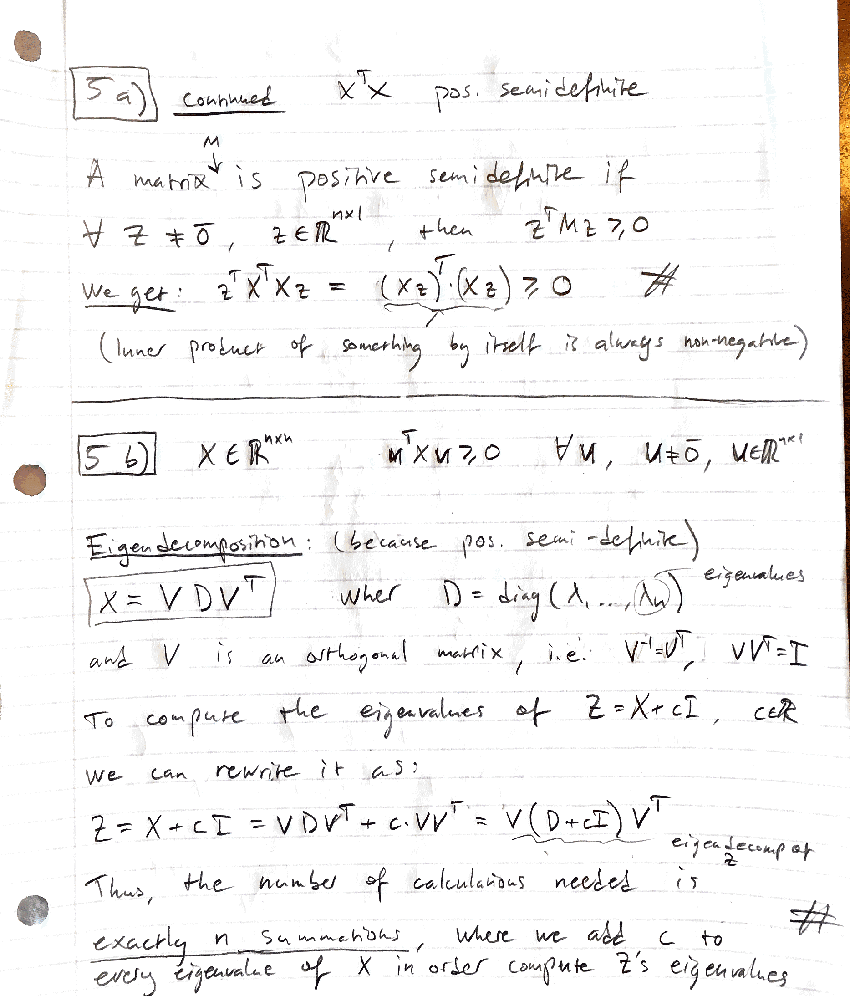 5 a) continued XᵀX pos. semidefinite
M
A matrix ↓ is positive semidefinite if
∀ z ≠ 0̄, z ∈ ℝⁿˣ¹, then zᵀMz ≥ 0
We get: zᵀXᵀXz = (Xz)ᵀ·(Xz) ≥ 0 #
(Inner product of something by itself is always non-negative)
5 b) X ∈ ℝⁿˣⁿ uᵀXu ≥ 0 ∀u, u ≠ 0̄, u ∈ ℝⁿˣ¹
Eigendecomposition: (because pos. semi-definite)
X = VDVᵀ wher D = diag(λ, ..., λₙ) eigenvalues
and V is an orthogonal matrix, i.e. V⁻¹=Vᵀ, VVᵀ=I
To compute the eigenvalues of Z = X + cI, c∈ℝ
we can rewrite it as:
Z = X + cI = VDVᵀ + c·VVᵀ = V(D+cI)Vᵀ
eigendecomp of Z
Thus, the number of calculations needed is
exactly n summations, where we add c to #
every eigenvalue of X in order compute Z's eigenvalues